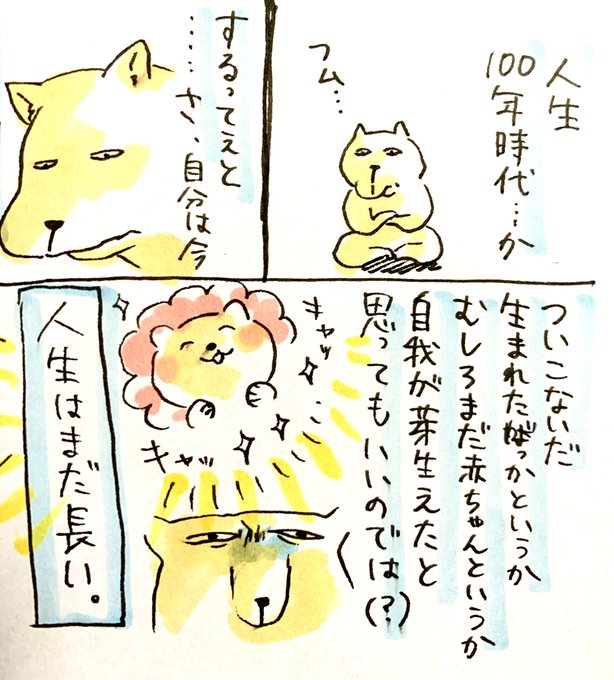 人生
100年時代…か
フム…
するってぇと
……さ、自分は今
ついこないだ
生まれたばっかというか
むしろまだ赤ちゃんというか
自我が芽生えたと
思ってもいいのでは(?)
キャッ
キャッ
人生はまだ長い。